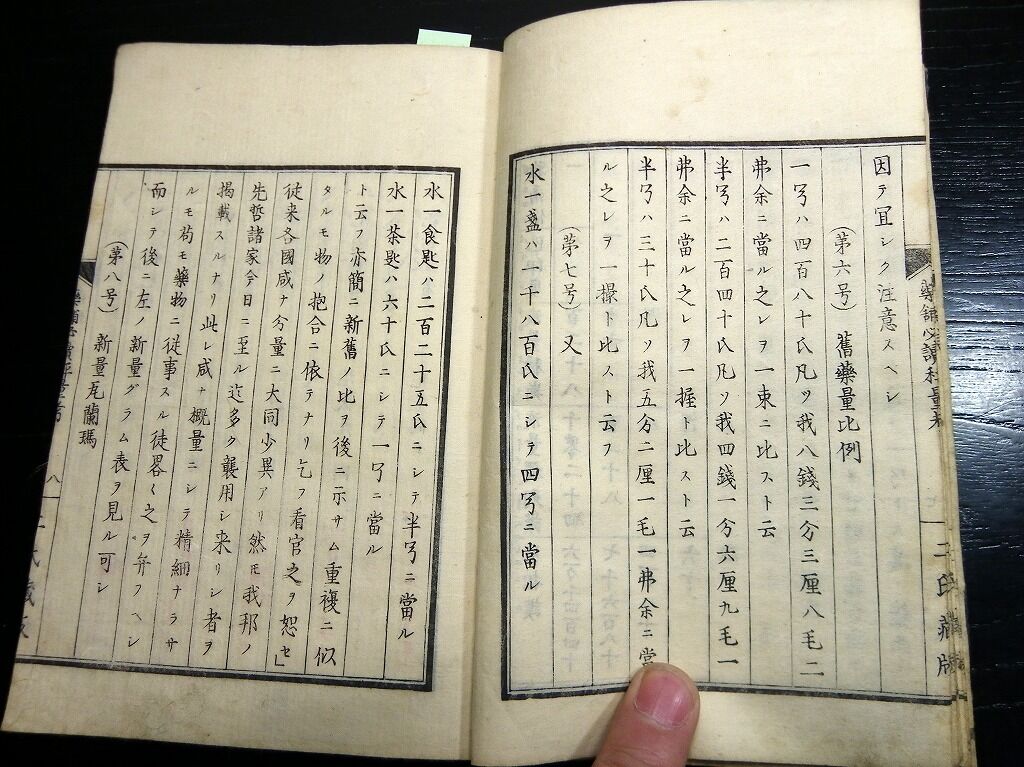 因テ冝シク注意スヘシ
(第六号) 舊藥量比例
一㕦ハ四百八十氏凡ソ我八錢三分三厘八毛二
弗余ニ當ル之レヲ一束ニ比スト云
半㕦ハ二百四十氏凡ソ我四錢一分六厘九毛一
弗余ニ當ル之レヲ一握ト比スト云
半㕦ハ三十氏凡ソ我五分二厘一毛一弗余ニ當
ル之レヲ一撮ト比スト云フ
(第七号) 又
水一盞ハ一千八百氏ニシテ四㕦ニ當ル
水一食匙ハ二百二十五氏ニシテ半㕦ニ當ル
水一茶匙ハ六十氏ニシテ一㕦ニ當ル
ト云フ亦簡ニ新舊ノ比ヲ後ニ示サム重複ニ似
タルモ物ノ抱合ニ依テナリ乞フ看官之ヲ恕セ
従来各國咸ナ分量ニ大同少異アリ然𪜈我邦ノ
先哲諸家今日ニ至ル迄多ク襲用シ来リシ者ヲ
掲載スルナリ此レ咸ナ概量ニシテ精細ナラサ
ルモ苟モ藥物ニ従事スル徒畧々之ヲ弁フヘシ
而シテ後ニ左ノ新量グラム表ヲ見ル可シ
(第八号) 新量瓦蘭瑪
八